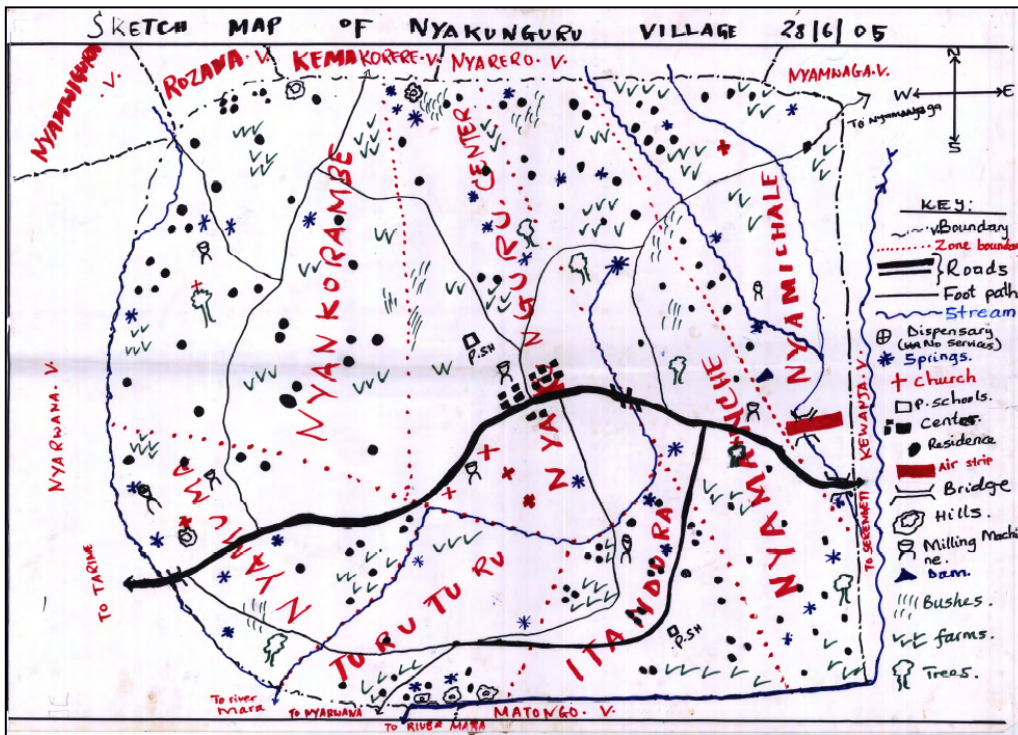 SKETCH MAP OF NYAKUNGURU VILLAGE 28/6/05
ROZANA.V.
KEMAKORERE.V.
NYARERO.V.
NYAMWAGA.V.
V.
N
W E
S
To Nyamwaga
NYANKORAMBE
NYAKUNGURU CENTER
NYAMICHALE
NYAMANCHE
NYAMUMA
TURUTURU
ITANDORA
P.SH
P.SH
NYARWANA. V.
KEWANJA. V.
TO SERENGETI
TO TARIME
To river mara
TO NYARWANA
TO RIVER MARA
MATONGO. V.
KEY:
Boundary
Zone boundary
Roads
Foot path
Stream
Dispensary
Springs.
church
P. schools.
Residence
Air strip
Bridge
Hills.
Milling Machi
ne.
Dam.
Bushes.
farms.
Trees.